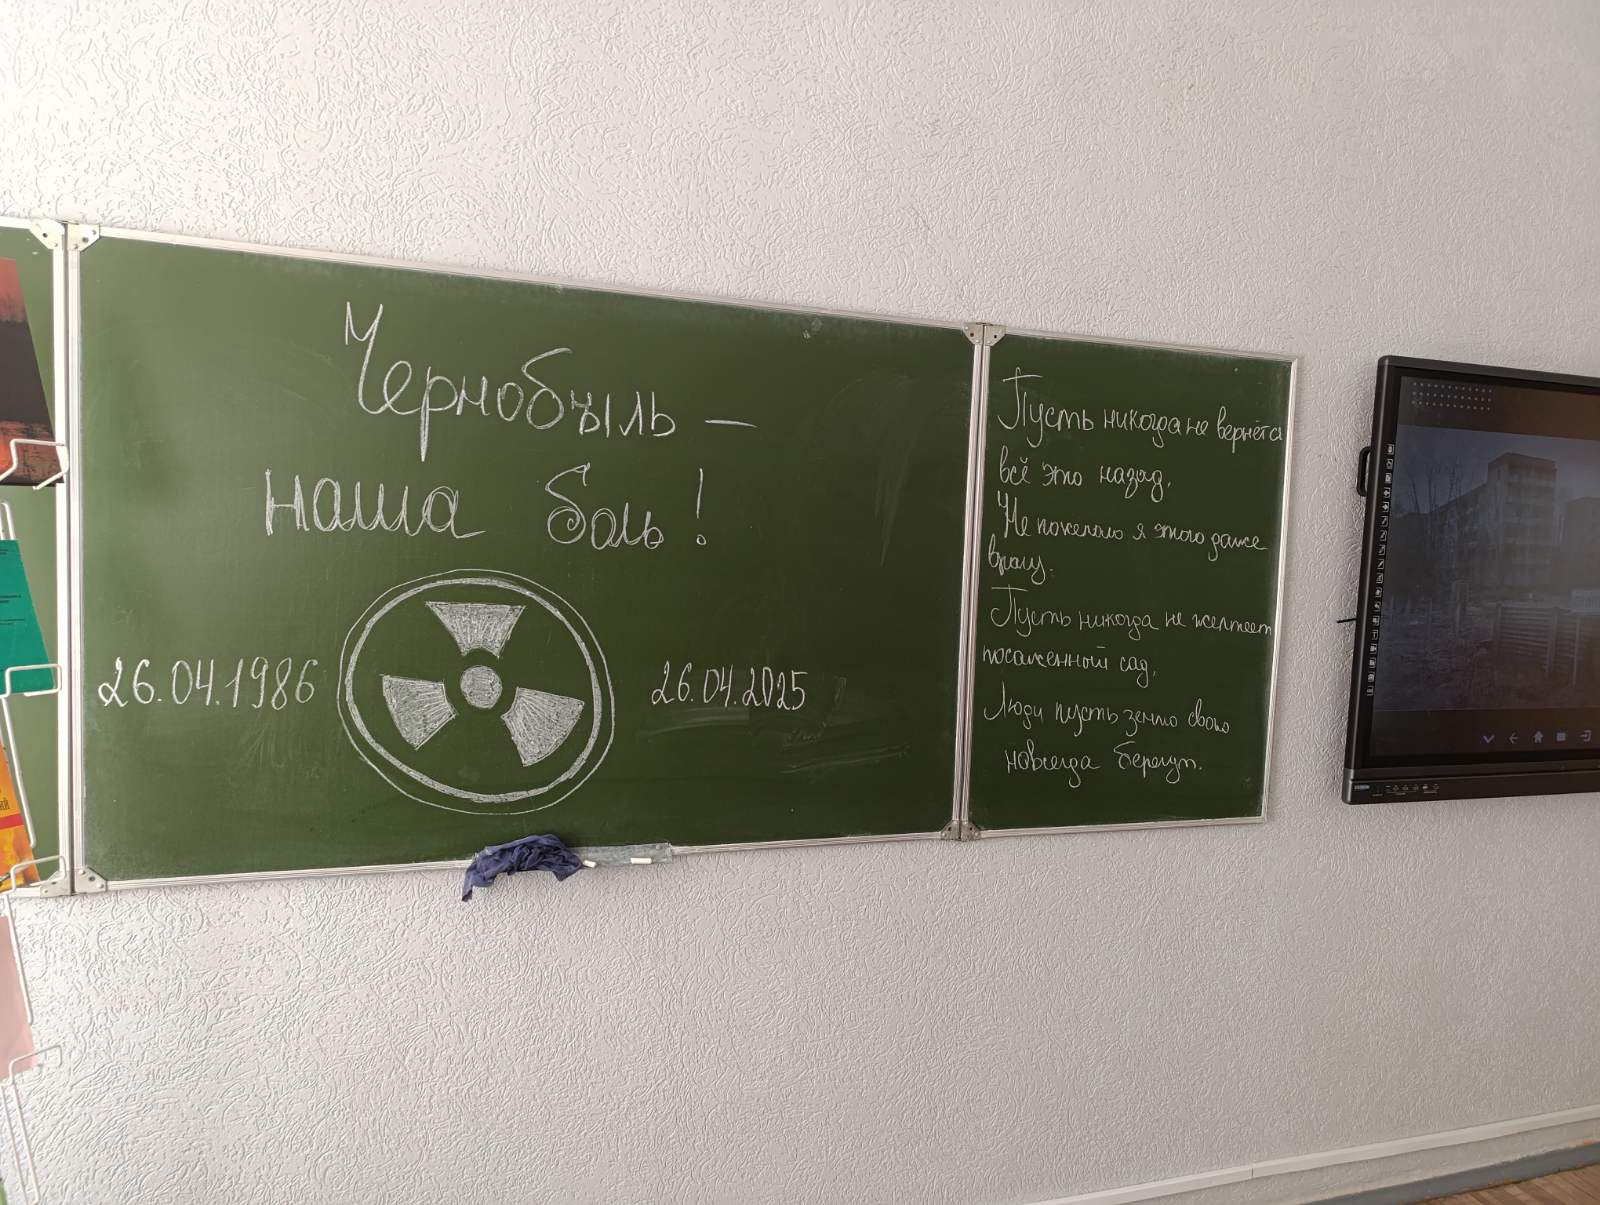 Чернобыль –
наша боль!
26.04.1986
26.04.2025
Пусть никогда не вернётся
всё это назад.
Не пожелаю я этого даже
врагу.
Пусть никогда не желтеет
посаженный сад,
Люди пусть землю свою
навсегда берегут.